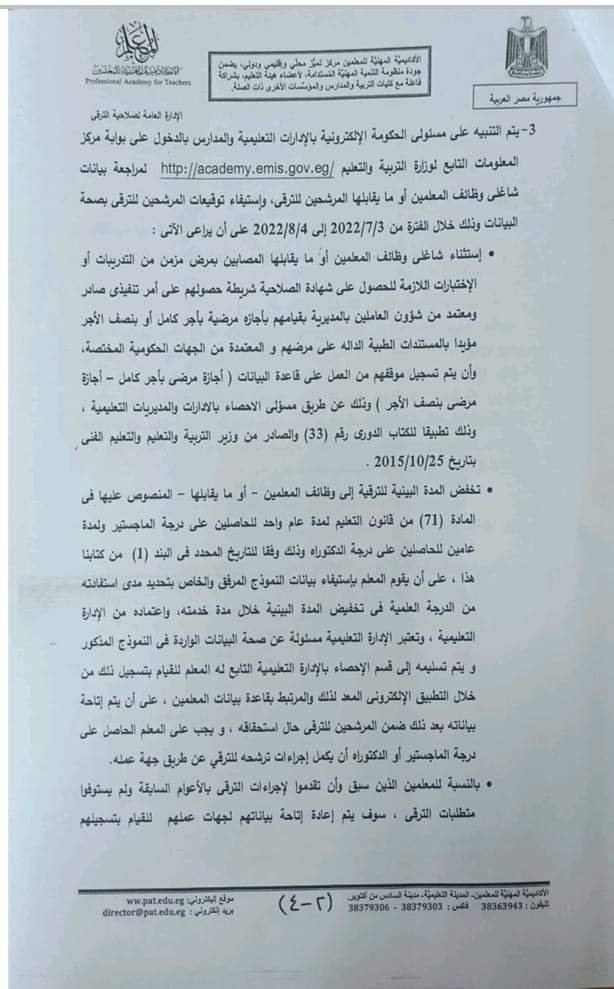 الأكاديمية المهنية للمعلمين
Professional Academy for Teachers
الأكاديميَّة المهنيَّة للمعلمين مركز تميُّز محلي وإقليمي ودولي، يضمن
جودة منظومة التنمية المهنيَّة المُستدامة، لأعضاء هيئة التعليم، بشراكة
فاعلة مع كليات التربية والمدارس والمؤسَّسات الأخرى ذات الصلة.
جمهورية مصر العربية
الإدارة العامة لصلاحية الترقى
3- يتم التنبيه على مسئولى الحكومة الإلكترونية بالإدارات التعليمية والمدارس بالدخول على بوابة مركز
المعلومات التابع لوزارة التربية والتعليم http://academy.emis.gov.eg/ لمراجعة بيانات
شاغلى وظائف المعلمين أو ما يقابلها المرشحين للترقى، وإستيفاء توقيعات المرشحين للترقى بصحة
البيانات وذلك خلال الفترة من 2022/7/3 إلى 2022/8/4 على أن يراعى الآتى :
• إستثناء شاغلى وظائف المعلمين أو ما يقابلها المصابين بمرض مزمن من التدريبات أو
الإختبارات اللازمة للحصول على شهادة الصلاحية شريطة حصولهم على أمر تنفيذى صادر
ومعتمد من شؤون العاملين بالمديرية بقيامهم بأجازه مرضية بأجر كامل أو بنصف الأجر
مؤيدا بالمستندات الطبية الداله على مرضهم و المعتمدة من الجهات الحكومية المختصة،
وأن يتم تسجيل موقفهم من العمل على قاعدة البيانات ( أجازة مرضى بأجر كامل – أجازة
مرضى بنصف الأجر ) وذلك عن طريق مسؤلى الاحصاء بالادارات والمديريات التعليمية ،
وذلك تطبيقا للكتاب الدورى رقم (33) والصادر من وزير التربية والتعليم والتعليم الفنى
بتاريخ 2015/10/25 .
• تخفض المدة البينية للترقية إلى وظائف المعلمين – أو ما يقابلها – المنصوص عليها فى
المادة (71) من قانون التعليم لمدة عام واحد للحاصلين على درجة الماجستير ولمدة
عامين للحاصلين على درجة الدكتوراه وذلك وفقا للتاريخ المحدد فى البند (1) من كتابنا
هذا ، على أن يقوم المعلم بإستيفاء بيانات النموذج المرفق والخاص بتحديد مدى استفادته
من الدرجة العلمية فى تخفيض المدة البينية خلال مدة خدمته، واعتماده من الإدارة
التعليمية ، وتعتبر الإدارة التعليمية مسئولة عن صحة البيانات الواردة فى النموذج المذكور
و يتم تسليمه إلى قسم الإحصاء بالإدارة التعليمية التابع له المعلم للقيام بتسجيل ذلك من
خلال التطبيق الإلكترونى المعد لذلك والمرتبط بقاعدة بيانات المعلمين ، على أن يتم إتاحة
بياناته بعد ذلك ضمن المرشحين للترقى حال استحقاقه ، و يجب على المعلم الحاصل على
درجة الماجستير أو الدكتوراه أن يكمل إجراءات ترشحه للترقي عن طريق جهة عمله.
• بالنسبة للمعلمين الذين سبق وأن تقدموا لإجراءات الترقى بالأعوام السابقة ولم يستوفوا
متطلبات الترقى ، سوف يتم إعادة إتاحة بياناتهم لجهات عملهم للقيام بتسجيلهم
الأكاديميَّة المهنيَّة للمعلمين، المدينة التعليميَّة، مدينة السادس من أكتوبر.
تليفون : 38363943 فاكس : 38379303 - 38379306
(٢-٤)
موقع إليكتروني: ww.pat.edu.eg
بريد إلكتروني : director@pat.edu.eg